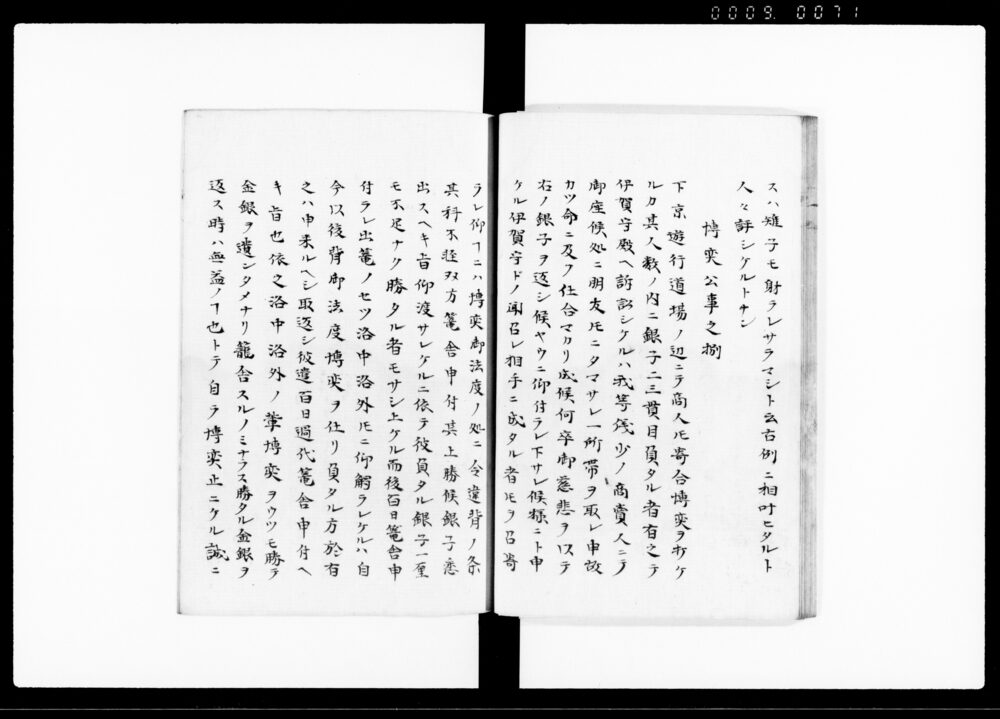 0009.0071
スハ雉子モ射ラレサラマシト云古例ニ相叶ヒタルト
人々評シケルトナン
博奕公事之捌
下京遊行道場ノ辺ニテ商人𪜈寄合博奕ヲ打ケ
ルカ其人数ノ内ニ銀子二三貫目負タル者有之テ
伊賀守殿ヘ訴訟シケルハ我等儀少ノ商賣人ニテ
御座候処ニ朋友𪜈ニタマサレ一所帯ヲ取レ申故
カツ命ニ及フ仕合マカリ成候何卒御慈悲ヲ以テ
右ノ銀子ヲ返シ候ヤウニ仰付ラレ下サレ候様ニト申
ケル伊賀守ドノ聞召レ相手ニ成タル者𪜈ヲ召寄
ラレ仰ヿニハ博奕御法度ノ処ニ令違背ノ条
其科不軽双方篭舎申付其上勝候銀子悉
出スヘキ旨仰渡サレケルニ依テ彼負タル銀子一厘
モ不足ナク勝タル者𪜈サシ上ケル而後百日篭舎申
付ラレ出篭ノセツ洛中洛外𪜈ニ仰觸ラレケルハ自
今以後背御法度博奕ヲ仕リ負タル方於有
之ハ申来ルヘシ取返シ彼遣百日過代篭舎申付ヘ
キ旨也依之洛中洛外ノ輩博奕ヲウツモ勝テ
金銀ヲ遣ンタメナリ籠舎スルノミナラス勝タル金銀ヲ
返ス時ハ無益ノヿ也トテ自ラ博奕止ニケル誠ニ